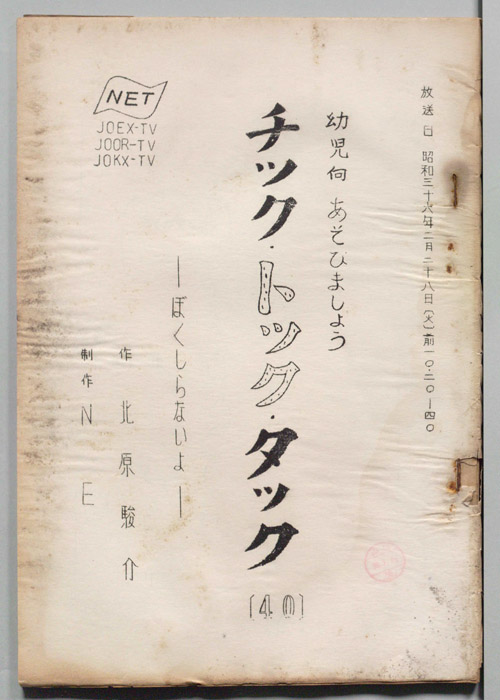 放送日 昭和三十六年二月二十八日(火)前一〇・二〇―四〇
幼児向 あそびましょう
チック・トック・タック
(40)
―ぼくしらないよ―
作 北原駿介
制作 NE
NET
JOEX-TV
JOOR-TV
JOKX-TV